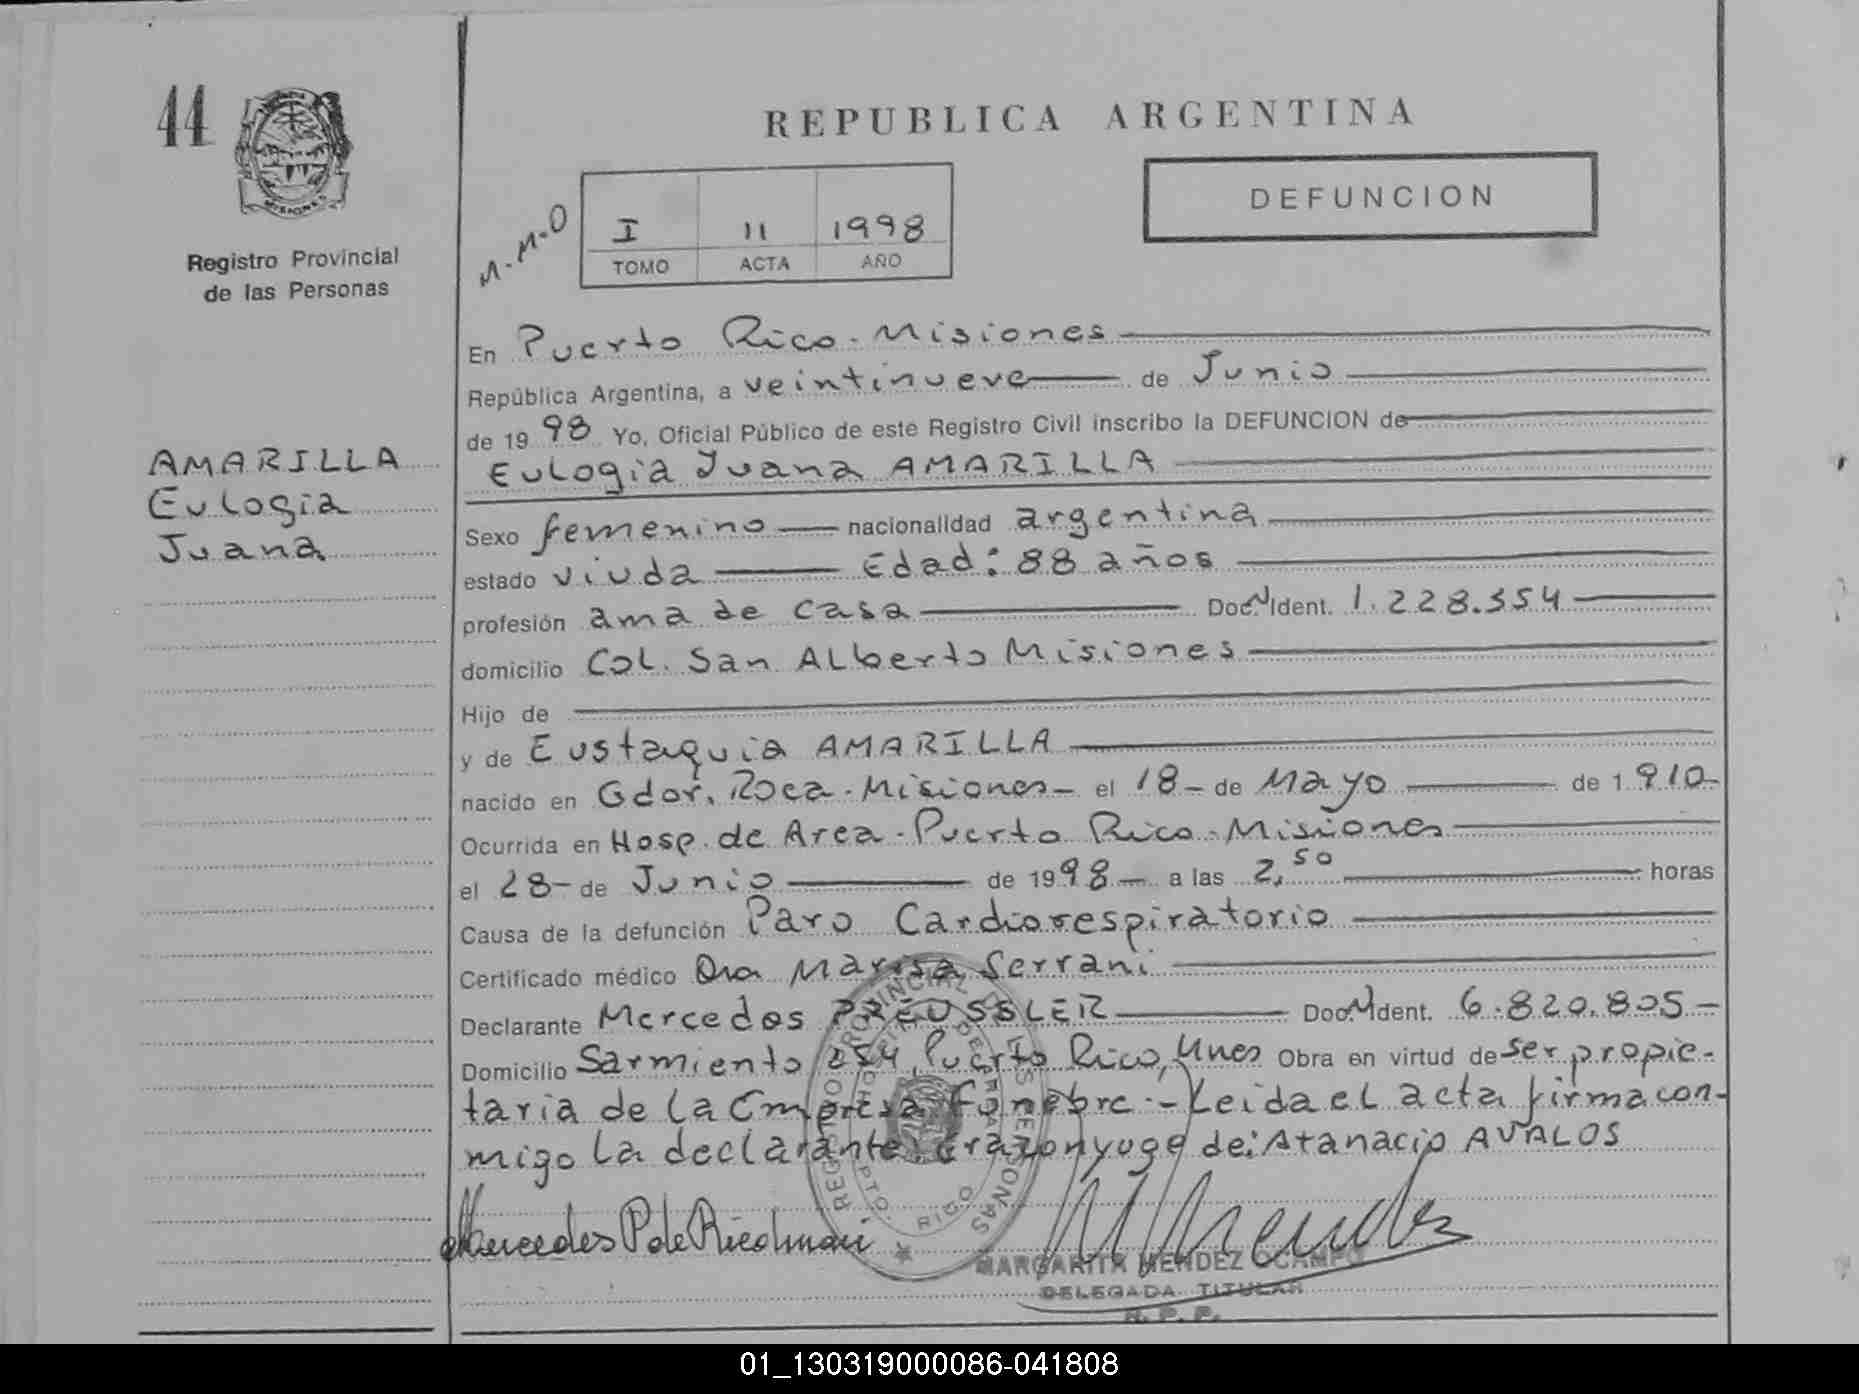 44
MISIONES
Registro Provincial
de las Personas
REPUBLICA ARGENTINA
DEFUNCION
M.M.O
I 11 1998
TOMO ACTA AÑO
AMARILLA
Eulogia
Juana
En Puerto Rico - Misiones
República Argentina, a veintinueve de Junio
de 1998 Yo, Oficial Público de este Registro Civil inscribo la DEFUNCION de
Eulogia Juana AMARILLA
Sexo femenino nacionalidad argentina
estado viuda Edad: 88 años
profesión ama de casa Doc. N Ident. 1.228.354
domicilio Col. San Alberto Misiones
Hijo de
y de Eustaquia AMARILLA
nacido en Gdor. Roca - Misiones - el 18 - de Mayo de 1910 -
Ocurrida en Hosp. de Area - Puerto Rico - Misiones
el 28 - de Junio de 1998 - a las 2,50 horas
Causa de la defunción Paro Cardiorespiratorio
Certificado médico Dra Marisa Serrani
Declarante Mercedes PREUSSLER Doc. N Ident. 6.820.805 -
Domicilio Sarmiento 254, Puerto Rico, Mnes Obra en virtud de ser propie-
taria de la Empresa Fúnebre. - Leida el acta firma con-
migo la declarante. Era conyuge de: Atanacio AVALOS
Mercedes P de Riedmaii
REGISTRO PROVINCIAL DE LAS PERSONAS
MARGARITA MENDEZ OCAMPO
DELEGADA TITULAR
R. P. P.
01_130319000086-041808